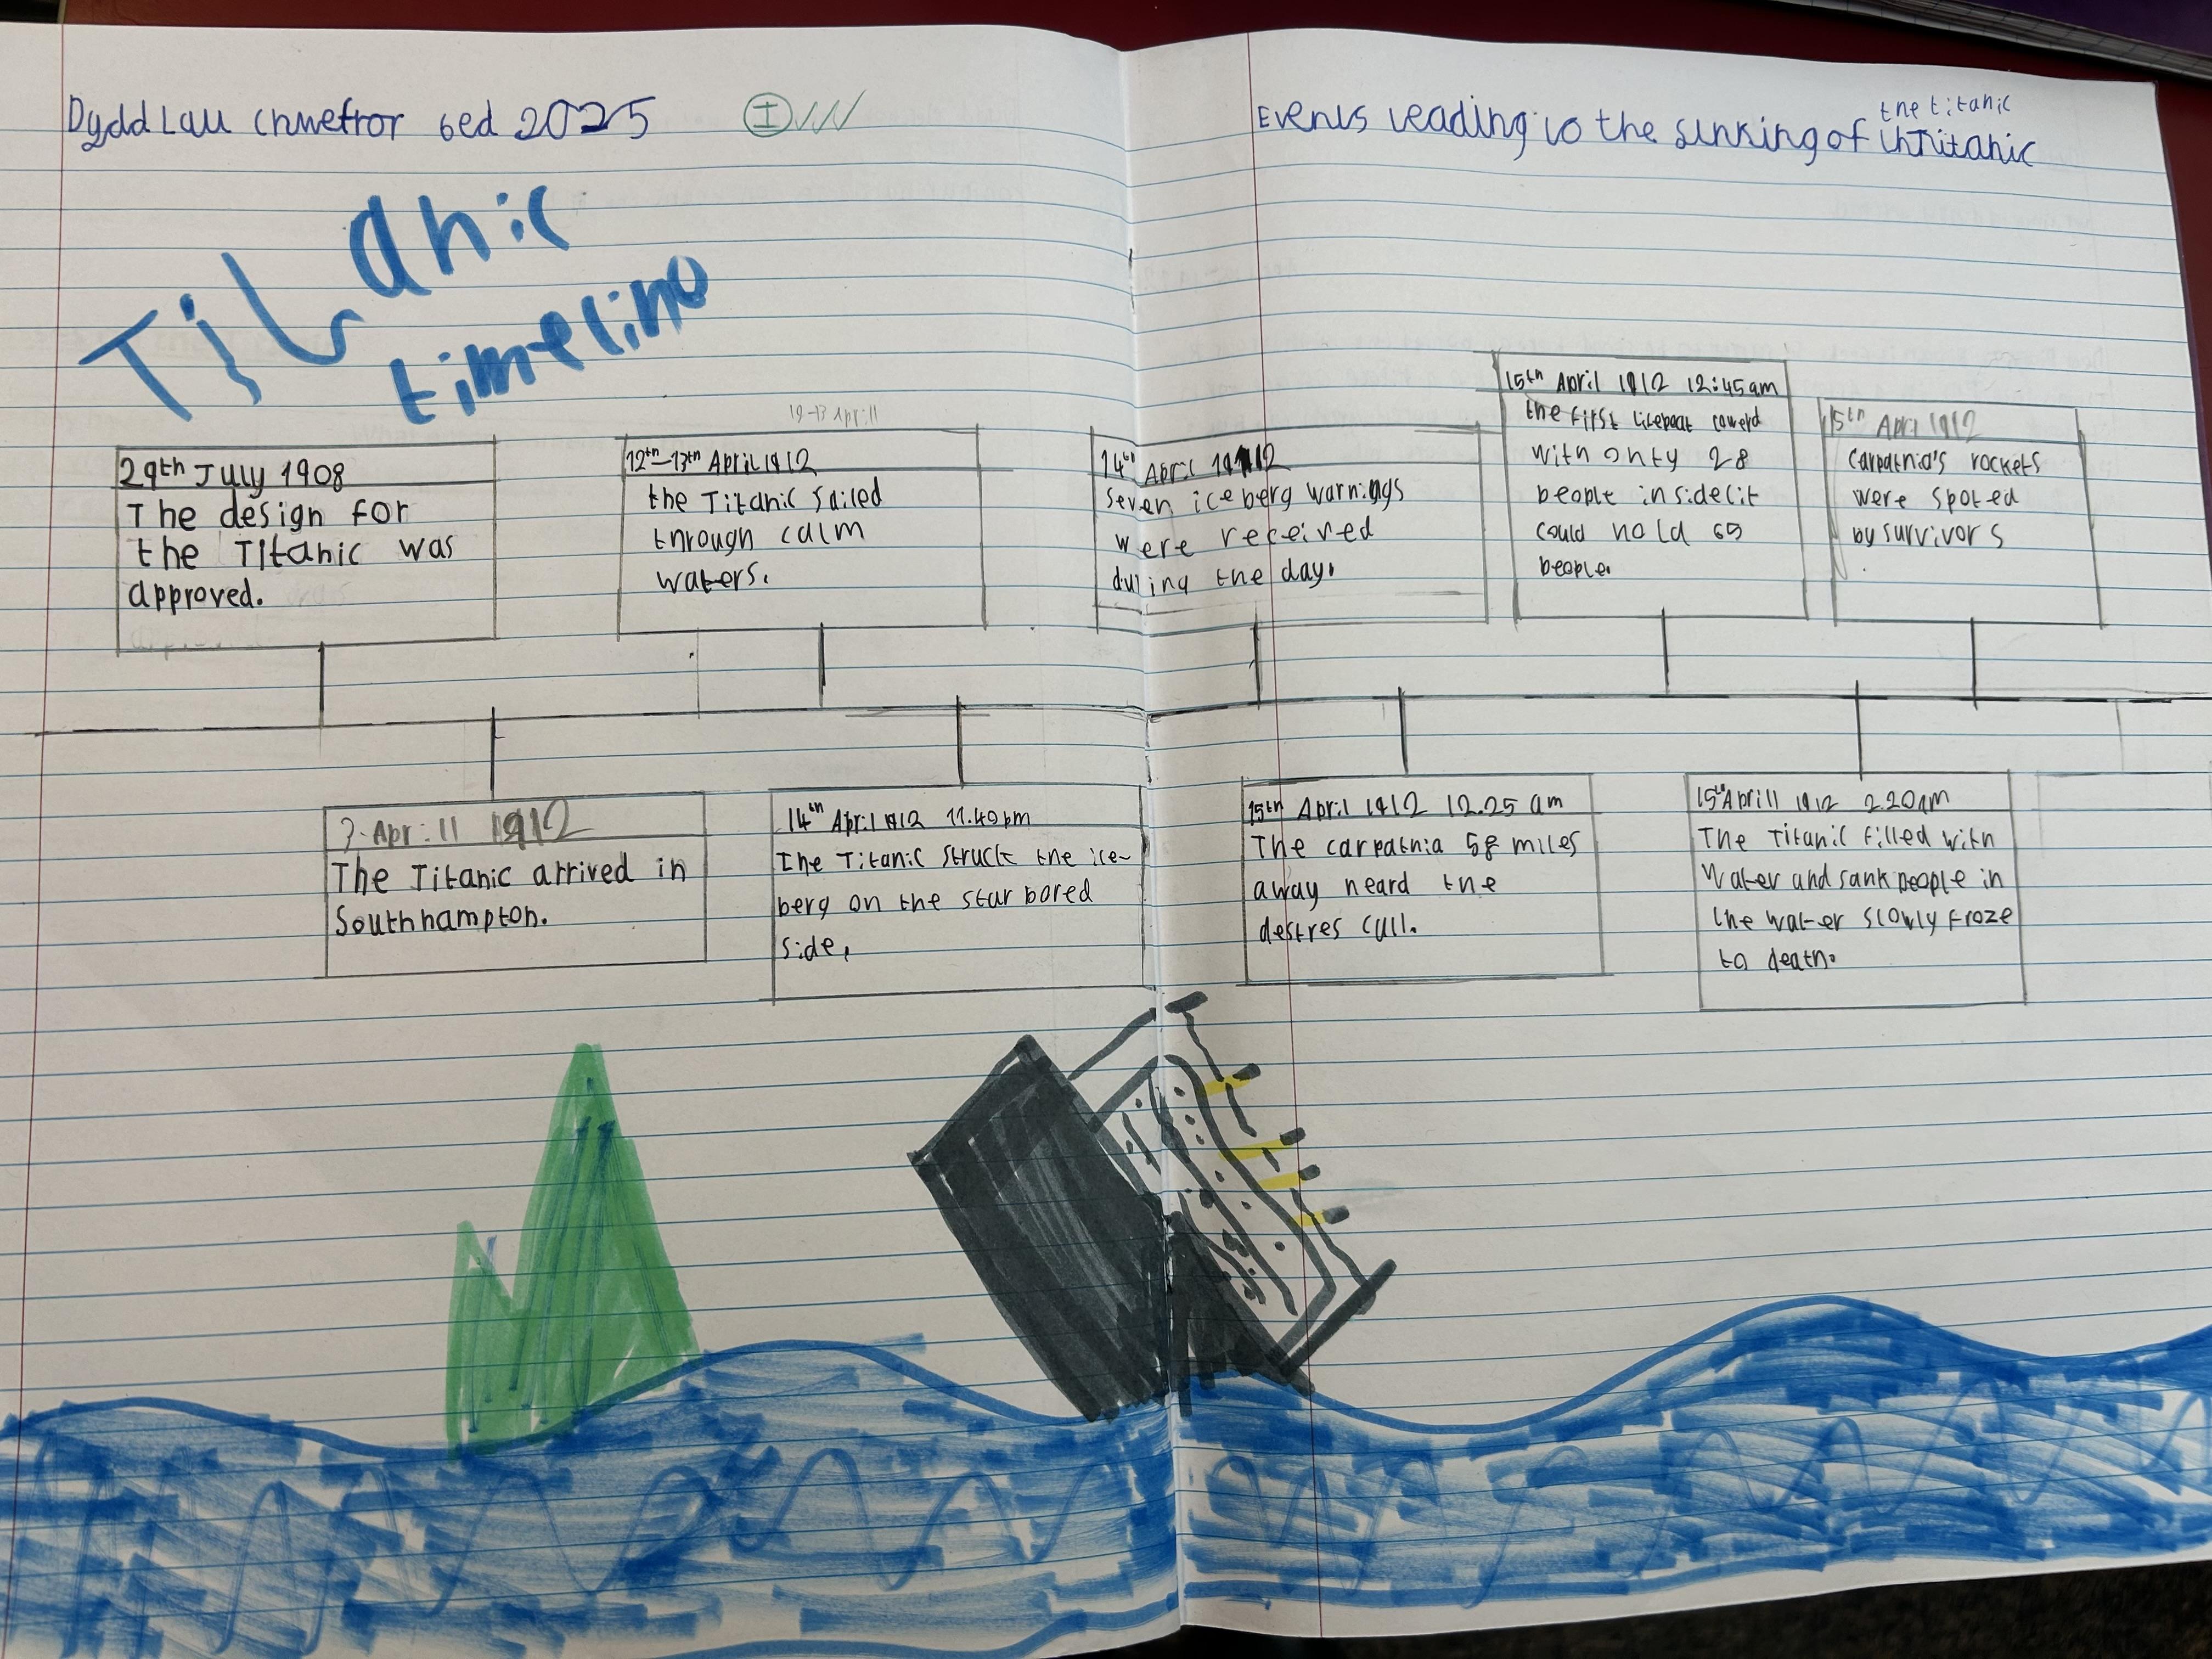 Dydd Lau Chwefror 6ed 2025
I
Events leading to the sinking of
the titanic
Titanic
timeline
29th July 1908
The design for
the Titanic was
approved.
12th-13th April 1912
the Titanic sailed
through calm
waters.
12-13 April
14th April 1912
seven iceberg warnings
were received
during the day.
15th April 1912 12:45am
the first lifeboat lowerd
with only 28
people inside(it
could hold 65
people.
15th April 1912
Carpathia's rockets
were spoted
by survivors
3 Aprill 1912
The Titanic arrived in
Southhampton.
14th April 1912 11.40pm
The Titanic struck the ice-
berg on the star bored
side.
15th April 1912 12.25 am
The carpathia 58 miles
away heard the
destres call.
15th Aprill 1912 2.20am
The Titanic filled with
water and sank people in
the water slowly froze
to death.